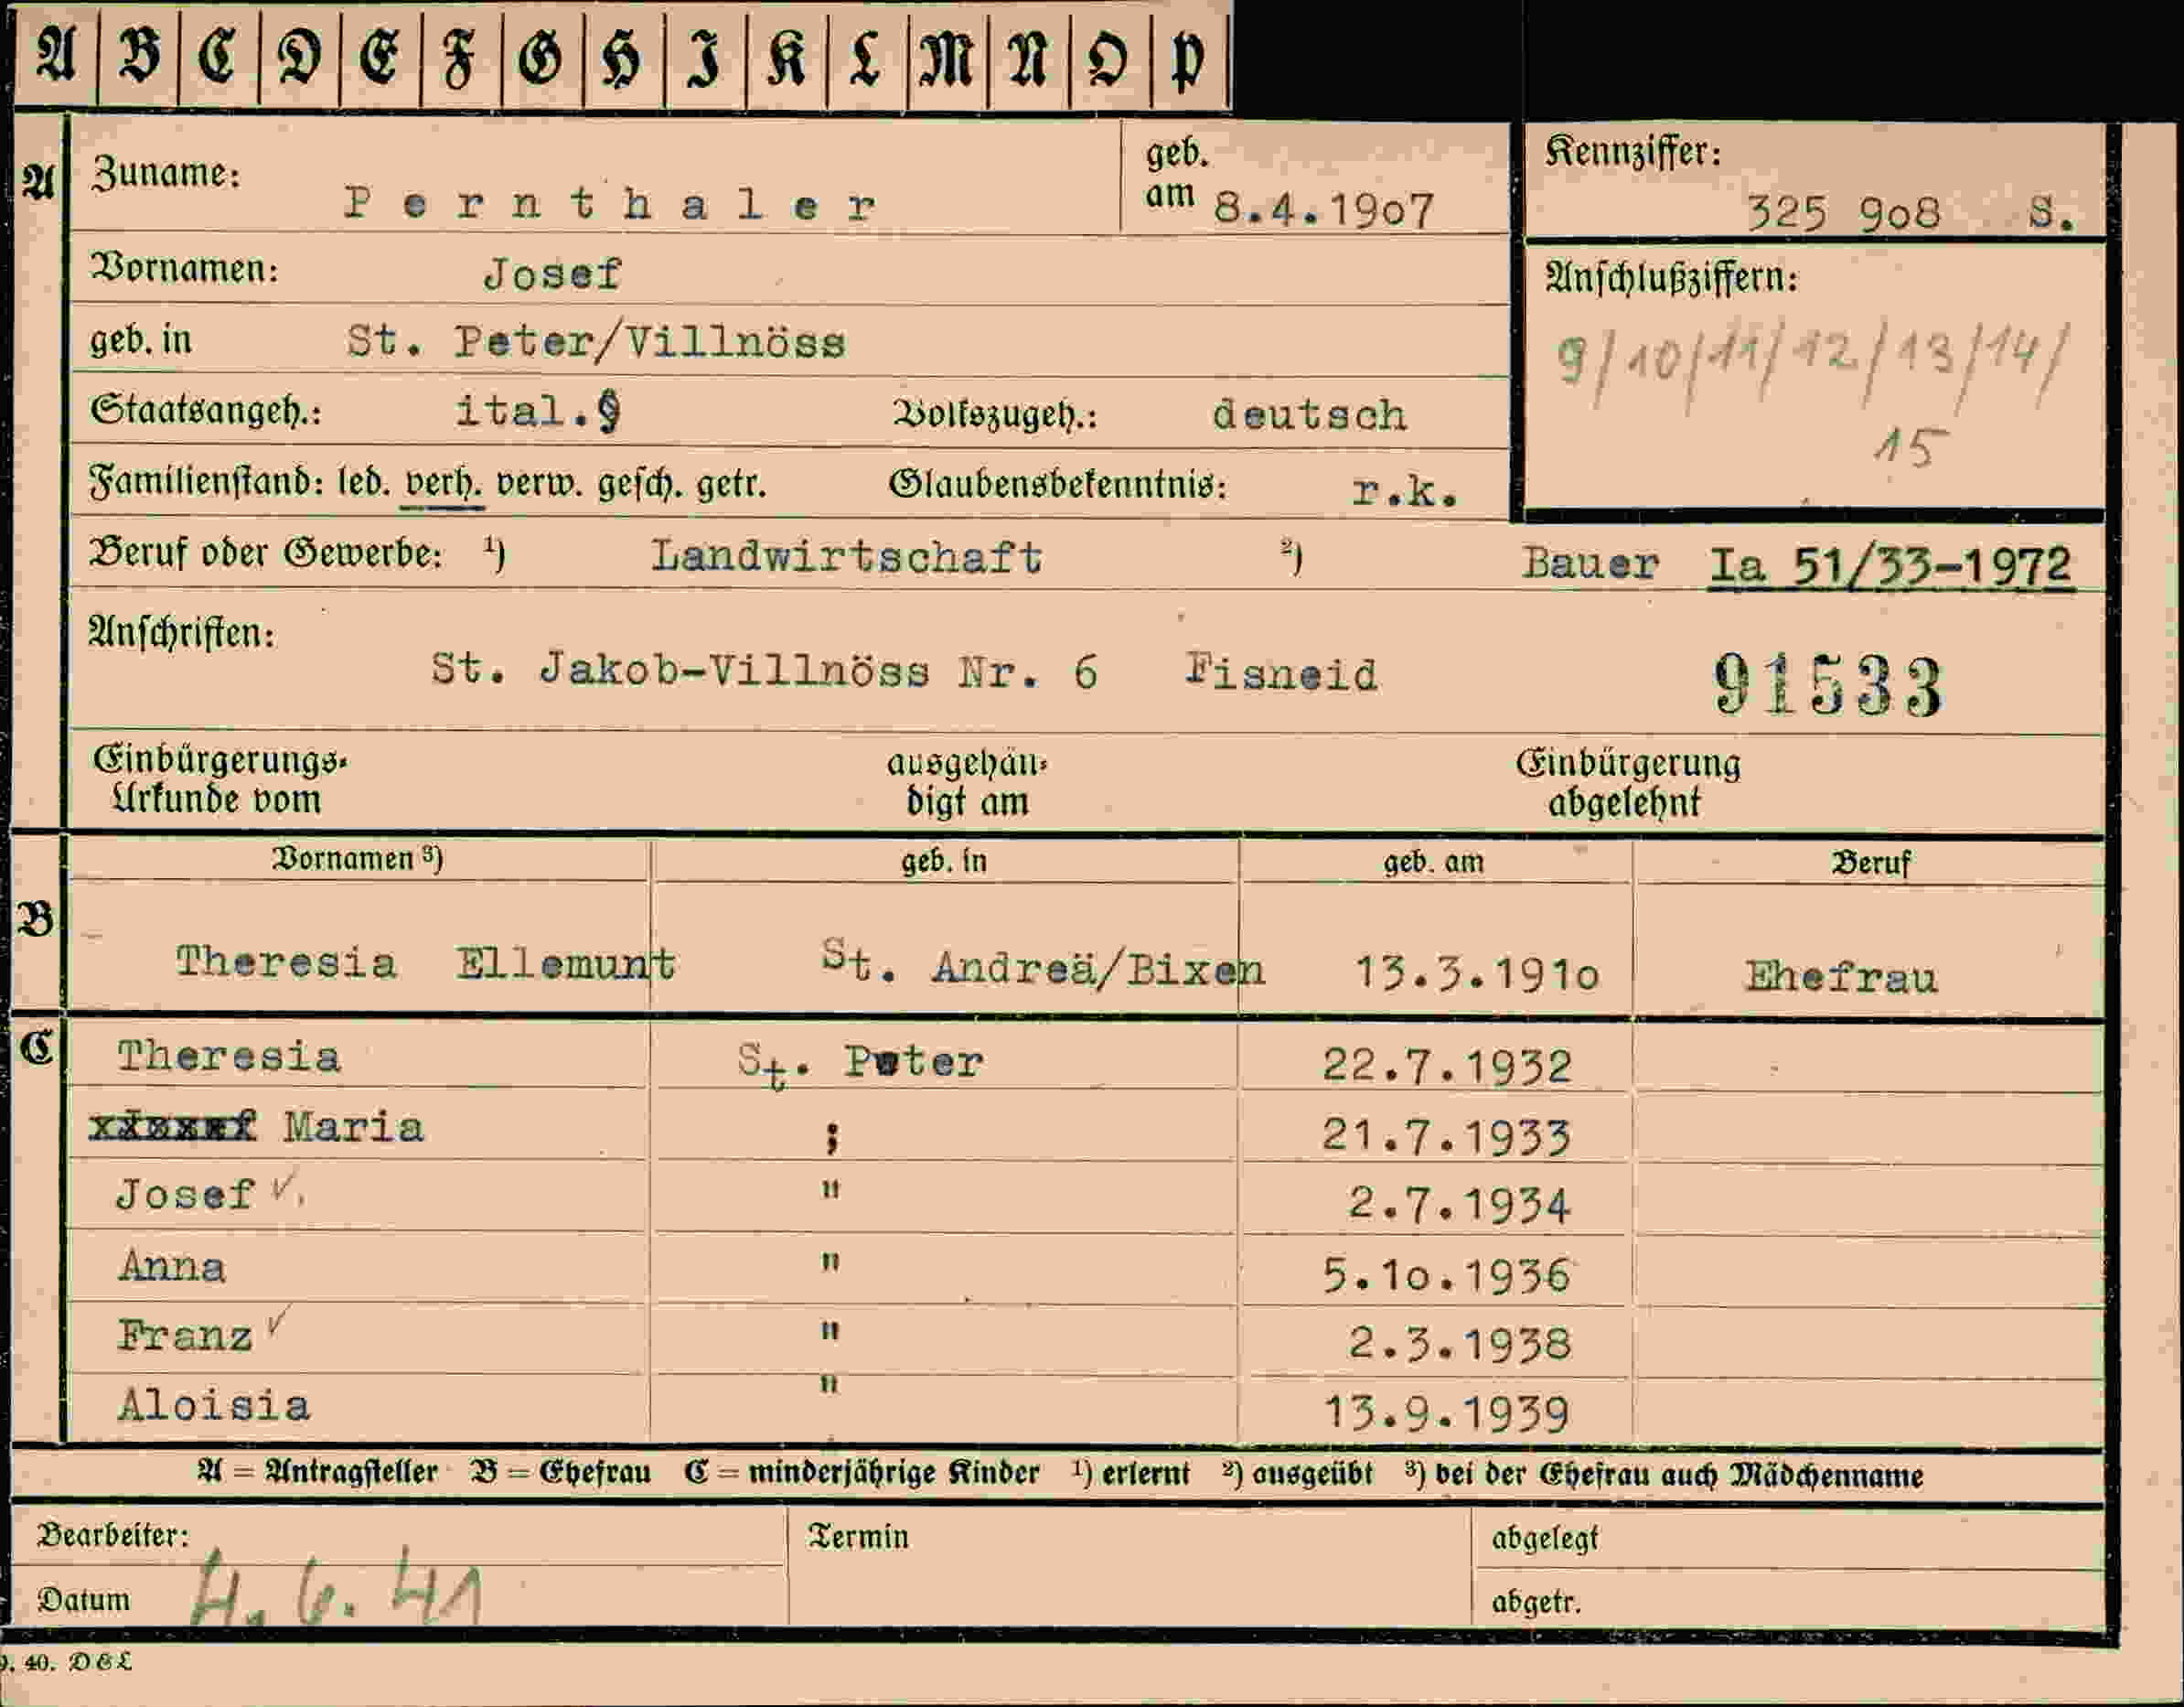 A B C D E F G H I K L M N O P
A Zuname: Pernthaler geb. am 8.4.19o7 Kennziffer: 325 9o8 S.
Vornamen: Josef Anschlußziffern:
geb. in St. Peter/Villnöss 9/10/11/12/13/14/
Staatsangeh.: ital.§ Volkszugeh.: deutsch 15
Familienstand: led. verh. verw. gesch. getr. Glaubensbekenntnis: r.k.
Beruf oder Gewerbe: 1) Landwirtschaft 2) Bauer Ia 51/33-1972
Anschriften:
St. Jakob-Villnöss Nr. 6 Fisneid 91533
Einbürgerungs- ausgehän- Einbürgerung
Urkunde vom digt am abgelehnt
B Vornamen 3) geb. in geb. am Beruf
Theresia Ellemunt St. Andreä/Bixen 13.3.191o Ehefrau
C Theresia St. Peter 22.7.1932
Maria ; 21.7.1933
Josef ✓. " 2.7.1934
Anna " 5.1o.1936
Franz ✓ " 2.3.1938
Aloisia " 13.9.1939
A = Antragsteller B = Ehefrau C = minderjährige Kinder 1) erlernt 2) ausgeübt 3) bei der Ehefrau auch Mädchenname
Bearbeiter: Termin abgelegt
Datum 4. 6. 41 abgetr.
9. 40. DEL